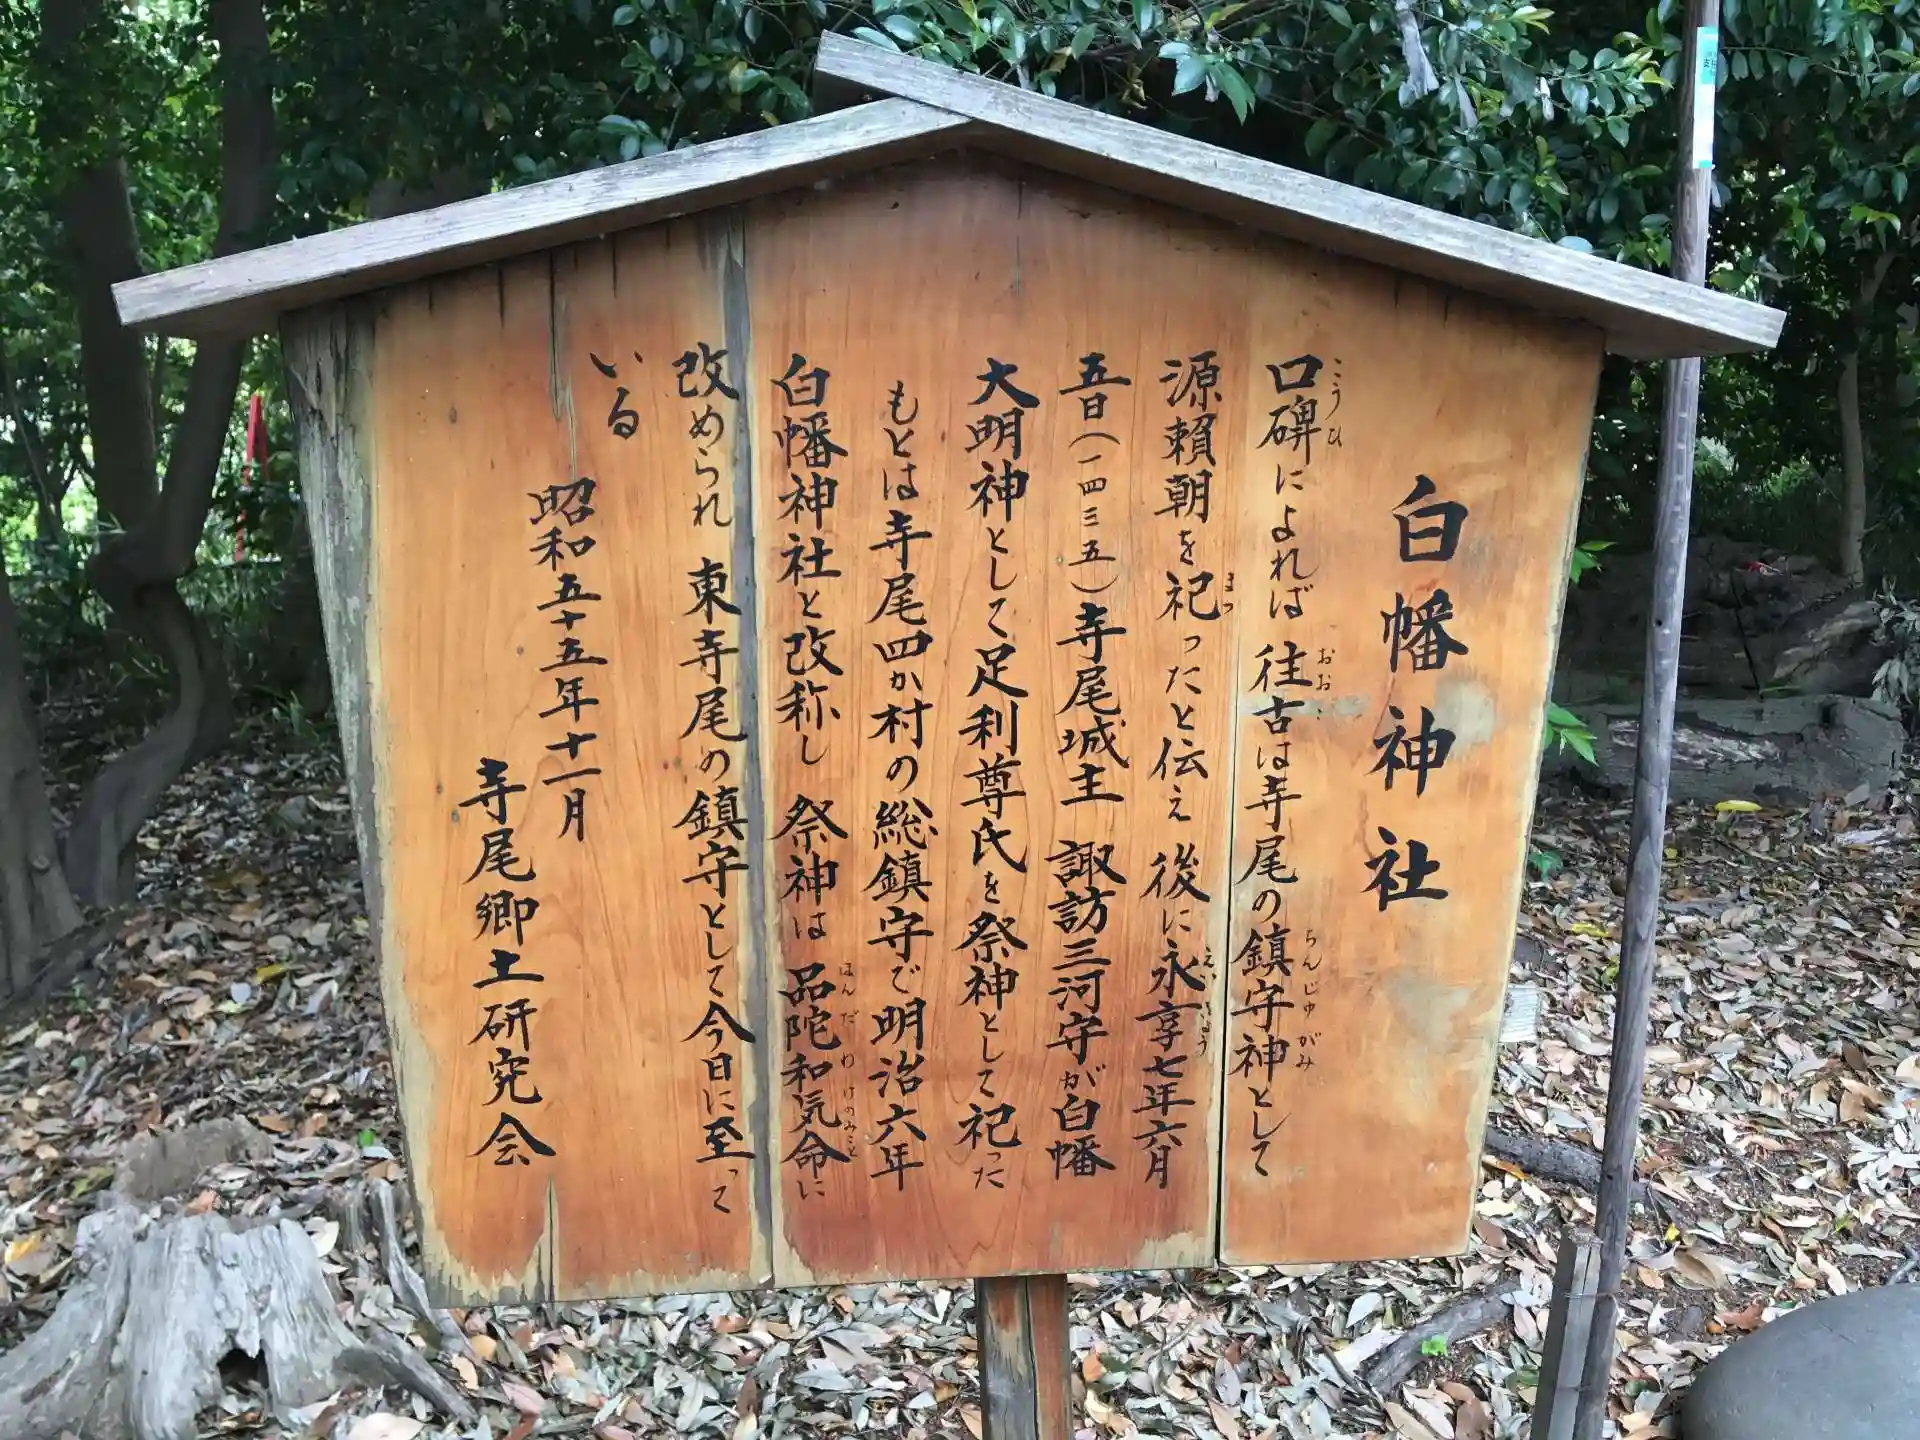 白幡神社
口碑によれば 往古は寺尾の鎮守神として
源賴朝を祀ったと伝え 後に永享七年六月
五日(一四三五)寺尾城主 諏訪三河守が白幡
大明神として足利尊氏を祭神として祀った
もとは寺尾四か村の総鎮守で明治六年
白幡神社と改称し 祭神は品陀和気命に
改められ 東寺尾の鎮守として今日に至って
いる
昭和五十五年十一月
寺尾郷土研究会
こうひ
おお
ちんじゅがみ
まつ
えいきょう
ほんだわけのみこと